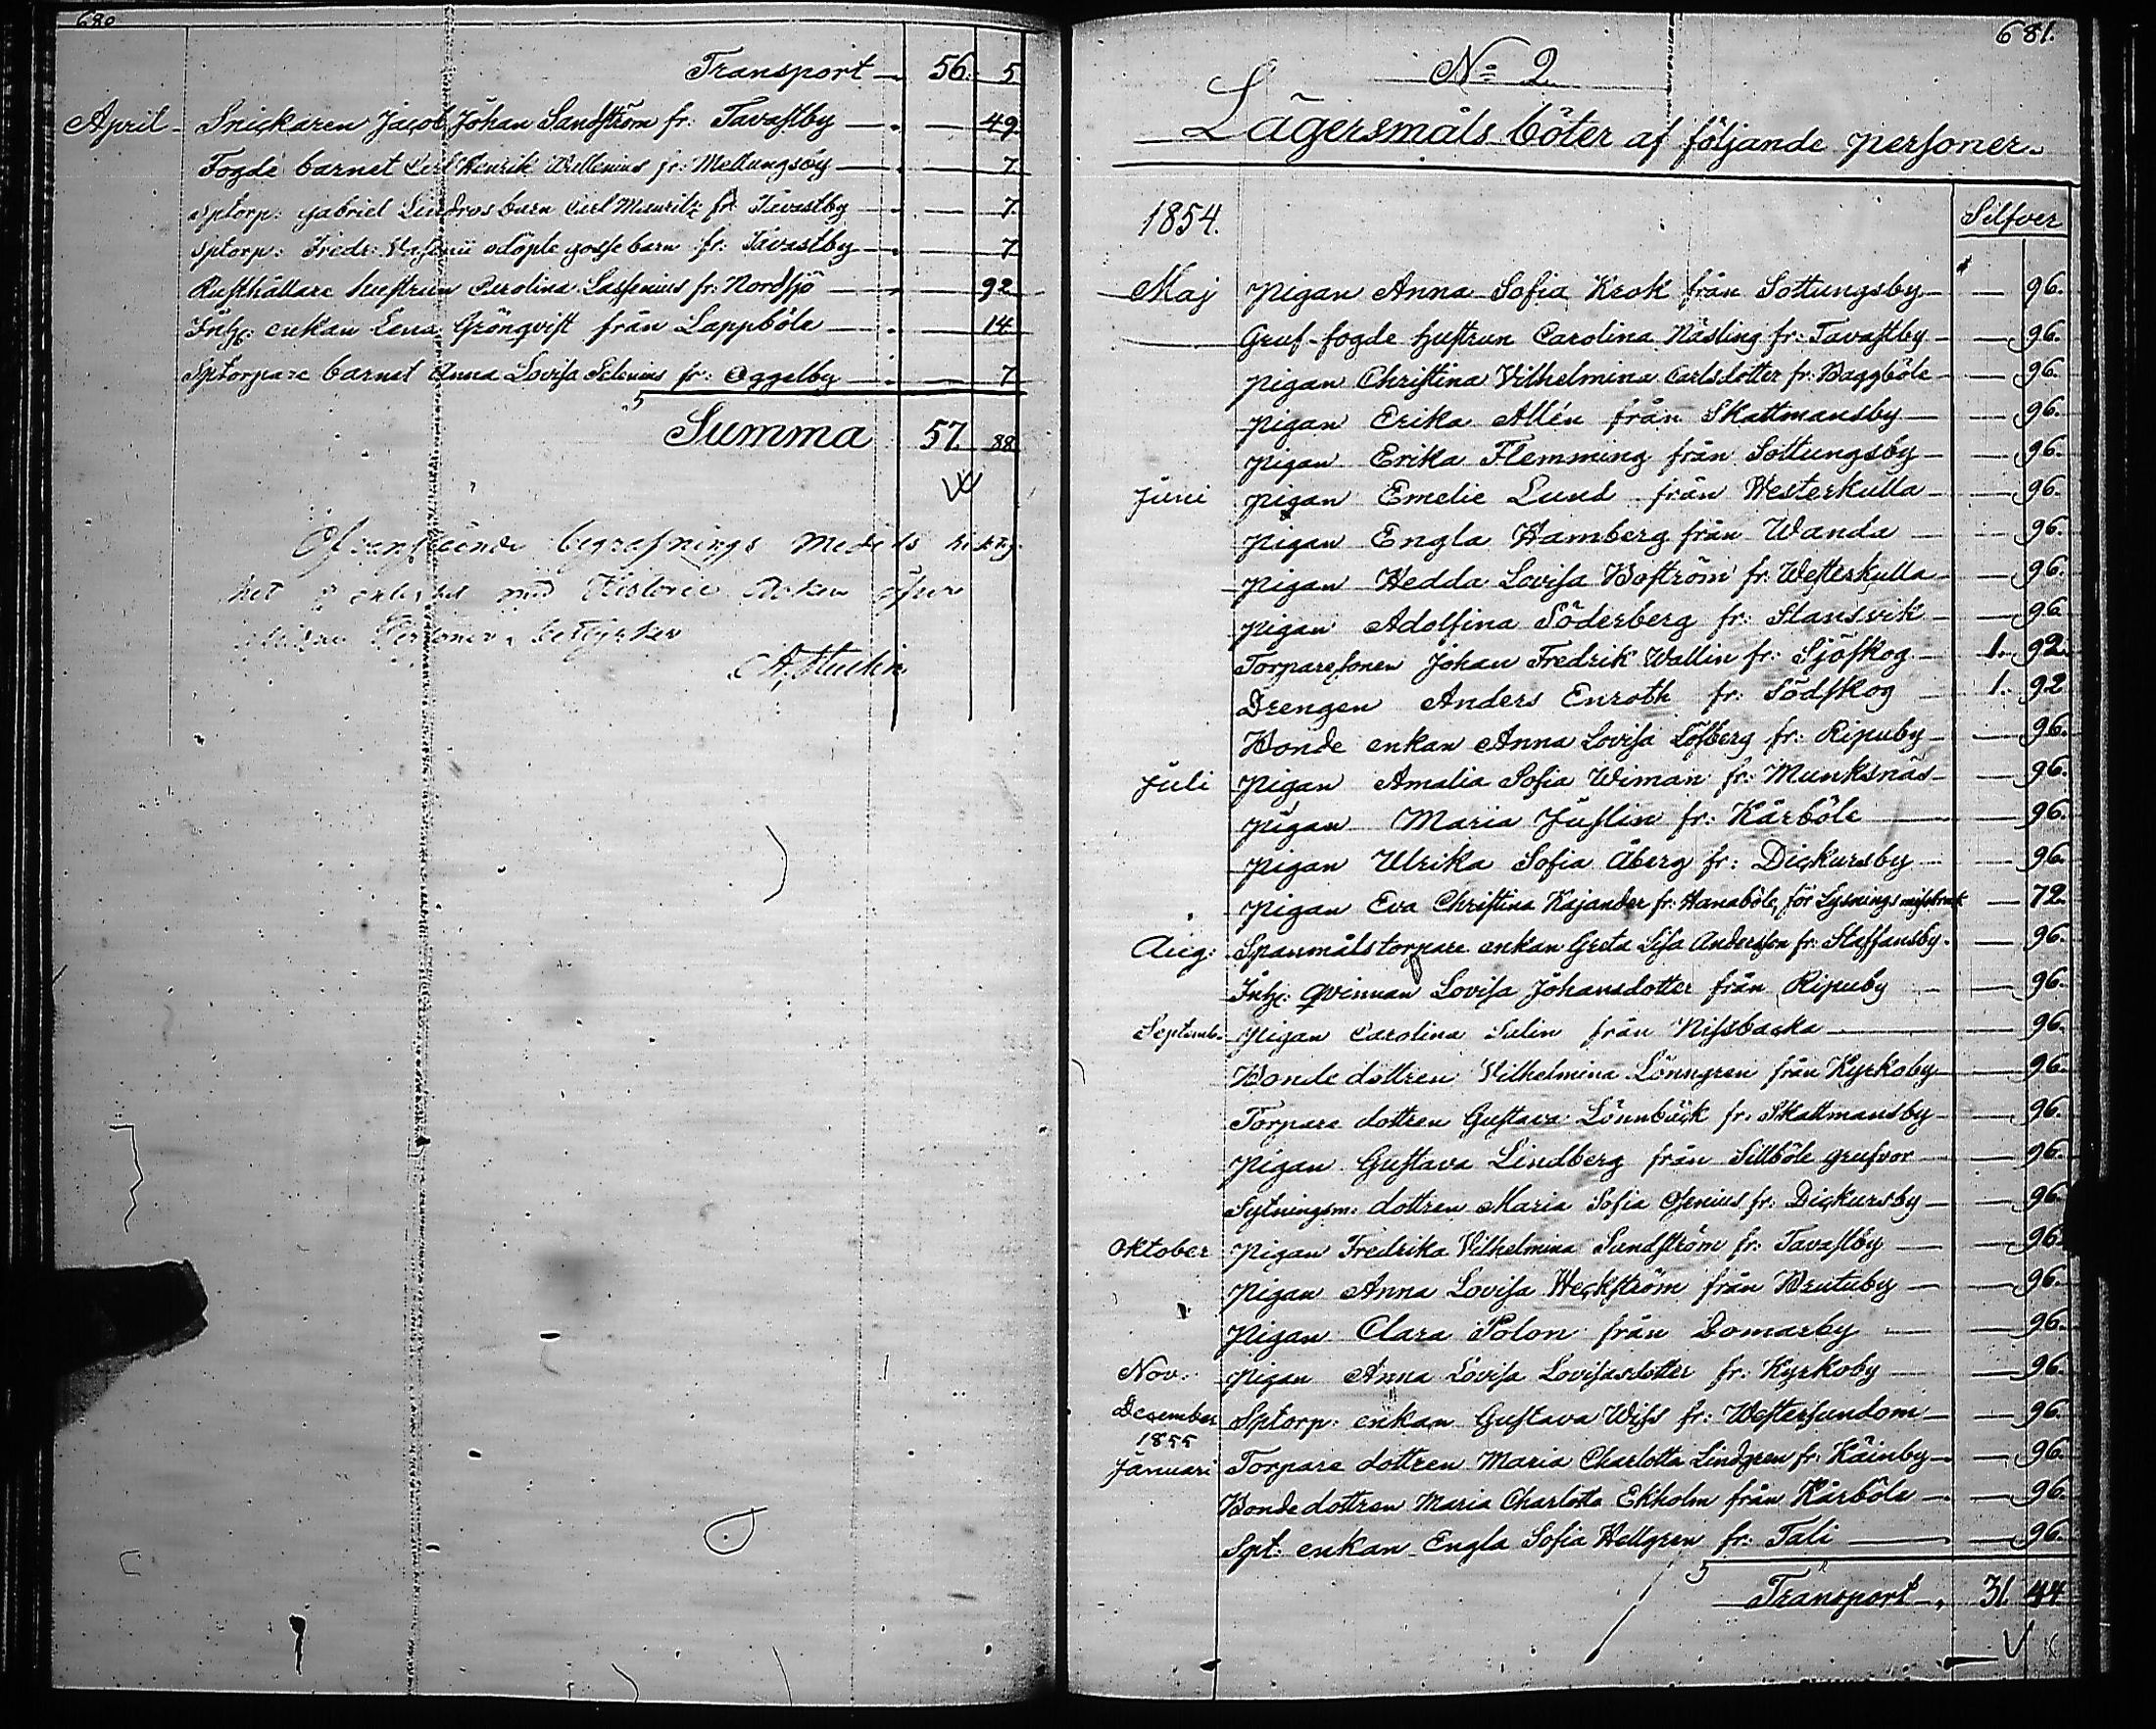 680
Transport 56. 5
April Snickaren Jacob Johan Sandström fr: Tavastby 49
Fogde barnet Carl Henrik Wellenius fr: Mellungsby 7.
Sptorp: Gabriel Lindros barn Carl Mauritz fr: Tavastby 7.
Sptorp: Fredr: odöpte gosse barn fr: Tavastby 7
Rusthållare hustrun Carolina Lassenius fr: Nordsjö 92
Inh: enkan Lena Grönqvist från Lappböle 14
Sptorpare barnet Anna Lovisa Selenius fr: Oggelby 7
Summa 57. 88
Ofvanstående begrafnings medels riktig-
het
A. Stuckin
681.
No 2
Lägersmåls böter af följande personer.
1854. Silfver
Maj pigan Anna Sofia Krok från Sottungsby 96.
Gruf-fogde hustrun Carolina Näsling fr: Tavastby 96.
pigan Christina Vilhelmina Carlsdotter fr: Baggböle 96.
pigan Erika Allén från Skattmansby 96.
pigan Erika Flemming från Sottungsby 96.
Juni pigan Emelie Lund från Westerkulla 96.
pigan Engla Hamberg från Wanda 96.
pigan Hedda Lovisa Boström fr: Westerkulla 96.
pigan Adolfina Söderberg fr: Stansvik 96
Torparesonen Johan Fredrik Wallin fr: Sjöskog 1. 92.
Drengen Anders Enroth fr: Södskog 1. 92
Bonde enkan Anna Lovisa Löfberg fr: Ripuby 96.
Juli pigan Amalia Sofia Wiman fr: Munksnäs 96.
pigan Maria Juslin fr: Kårböle 96.
pigan Ulrika Sofia Åberg fr: Dickursby 96.
pigan Eva Christina Kajander fr: Hanaböle, för Lysnings missbruk 72.
Aug: Spanmålstorpare enkan Greta Lisa Andersson fr: Staffansby. 96.
Inh: qvinnan Lovisa Johansdotter från Ripuby 96.
Septemb. Pigan Carolina Salin från Nissbacka 96.
Bonde dottren Vilhelmina Lönngren från Kyrkoby 96.
Torpare dottren Gustava Lönnbäck fr: Skattmansby 96.
Pigan Gustava Lindberg från Sillböle grufvor 96.
Sytningsm: dottren Maria Sofia Osenius fr: Dickursby 96.
Oktober pigan Fredrika Vilhelmina Sundström fr: Tavastby 96.
pigan Anna Lovisa Heckström från Brutuby 96.
pigan Clara Polon från Domarby 96.
Nov. pigan Anna Lovisa Lovisasdotter fr: Kyrkoby 96.
December Sptorp: enkan Gustava Wiss fr: Westersundom 96.
1855
Januari Torpare dottren Maria Charlotta Lindgren fr: Käinby 96.
Bonde dottren Maria Charlotta Ekholm från Kårböle 96.
Spt: enkan Engla Sofia Hellgren fr: Tali 96.
Transport 31. 44